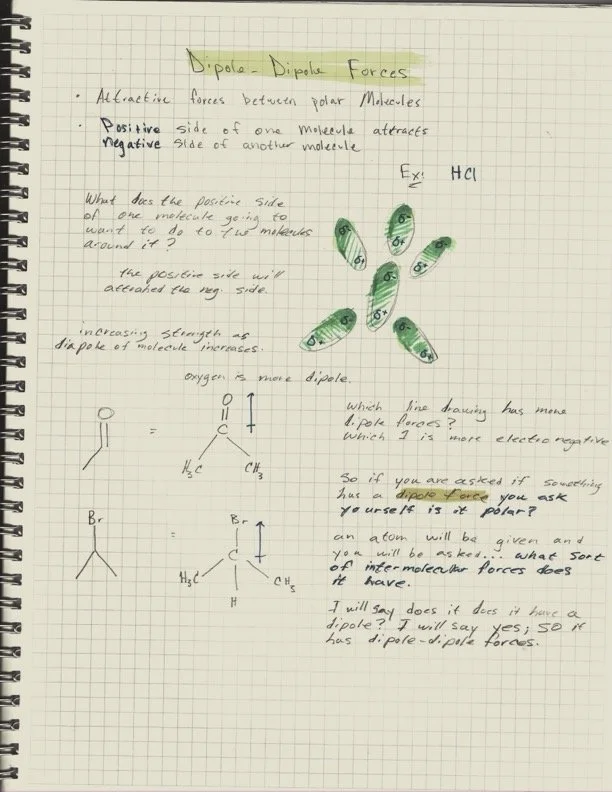 Dipole - Dipole Forces
• Attractive forces between polar Molecules
• Positive side of one molecule attracts
negative side of another molecule
Ex: HCl
What does the positive side
of one molecule going to
want to do to the molecules
around it?
the positive side will
the neg. side.
δ-
δ+
δ-
δ+
δ-
δ+
δ-
δ+
δ-
δ+
δ-
δ+
increasing strength as
of molecule increases.
oxygen is more dipole.
O
=
O
C
H₃C
CH₃
which line drawing has more
dipole forces?
which 1 is more electronegative
So if you are asked if something
has a dipole force you ask
yourself is it polar?
Br
=
Br
C
H₃C
CH₃
H
an atom will be given and
you will be asked... what sort
of intermolecular forces does
it have.
I will say does it does it have a
dipole? I will say yes; so it
has dipole-dipole forces.